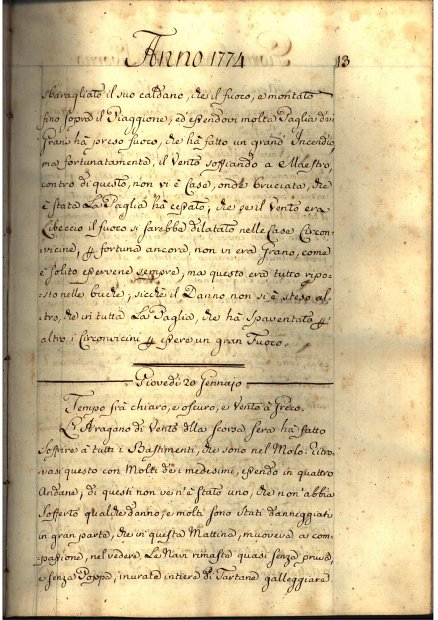 Anno 1774
13
sbaragliato il suo caldano, che il fuoco, e montato
fino sopra il Piaggione, ed essendovi molta Paglia di
Grani hà preso fuoco, che hà fatto un grand' Incendio,
ma fortunatamente, il Vento soffiando a Maestro,
contro di questo, non vi è Case, onde bruciata, che
è stata La Paglia hà cessato, che se il Vento era
Libeccio il fuoco si sarebbe dilatato nelle Case Circon-
vicine, per fortuna ancora, non vi era Grano, come
è solito esservene sempre, ma questo era tutto ripo-
sto nelle buche, sicchè il Danno non si è steso al-
tro, che in tutta La Paglia, che hà spaventato gl'
altri Circonvicini per essere un gran Fuoco.
Giovedì 20 Gennaio
Tempo frà chiaro, e oscuro, e Vento à Greco.
L'Uragano di Vento della scorsa sera hà fatto
soffrire à tutti i Bastimenti, che sono nel Molo: ritro-
vasi questo con Molti de i medesimi, essendo in quattro
Andane, di questi non ve n'è stato uno, che non abbia
sofferto qualche danno, e molti sono stati danneggiati
in gran parte, che in questa Mattina, muoveva a com-
passione, nel vedere, Le Navi rimaste quasi senza prua,
e senza Poppa, murate intiere di Tartane galleggiare